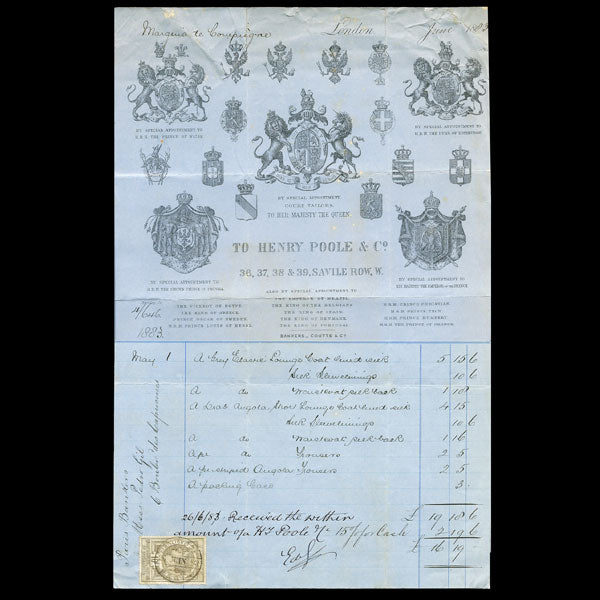 Marquis de Compiègne London June 1883
BY SPECIAL APPOINTMENT TO
H.R.H. THE PRINCE OF WALES
BY SPECIAL APPOINTMENT TO
H.R.H. THE DUKE OF EDINBURGH
BY SPECIAL APPOINTMENT
COURT TAILORS,
TO HER MAJESTY THE QUEEN
TO HENRY POOLE & Co.
36, 37, 38 & 39, SAVILE ROW, W.
BY SPECIAL APPOINTMENT TO
H.R.H. THE CROWN PRINCE OF PRUSSIA
BY SPECIAL APPOINTMENT TO
HIS MAJESTY THE EMPEROR OF THE FRENCH
ALSO BY SPECIAL APPOINTMENT TO
THE EMPEROR OF BRAZIL
THE VICEROY OF EGYPT. THE KING OF THE BELGIANS H.R.H. PRINCE CHRISTIAN
THE KING OF GREECE. THE KING OF SPAIN. H.S.H. PRINCE TECK
PRINCE OSCAR OF SWEDEN THE KING OF DENMARK H.R.H. PRINCE HUMBERT
H.R.H. PRINCE LOUIS OF HESSE. THE KING OF PORTUGAL H.R. THE PRINCE OF ORANGE.
BANKERS, COUTTS & Co
1883.
May 1 A Grey Lounge Coat lined silk 5 15 6
Silk Sleevelinings 10 6
A do Waistcoat silk back 1 18
A Drab Angola Lounge Coat lined silk 4 15
Silk Sleevelinings 10 6
A do Waistcoat silk back 1 16
A pr do Trousers 2 5
A pr striped Angola Trousers 2 5
A packing Case 3 -
£ 19 18 6
26/6/83 Received the within
amount of a/ H Poole & Co 15% for Cash 2 19 6
£ 16 19
Paris Bankers